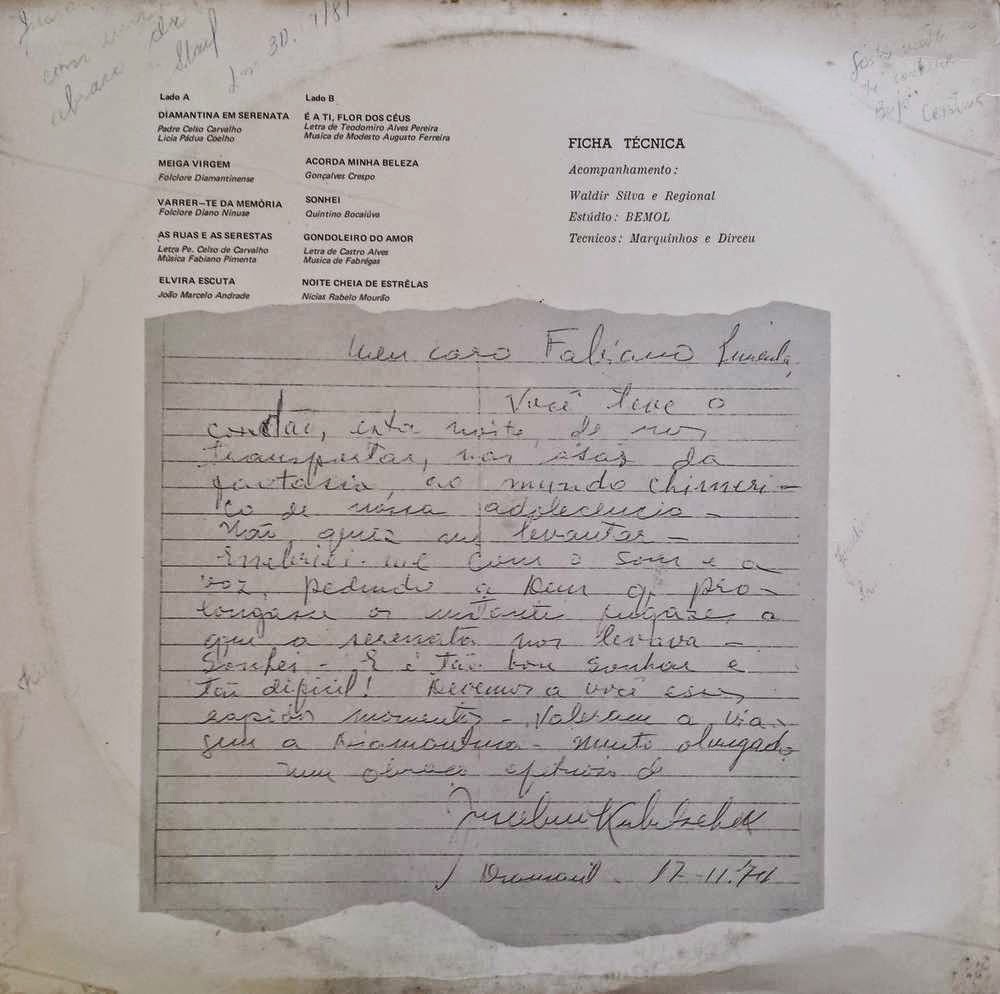 com um
abraço do
30. 7/81
Lado A
DIAMANTINA EM SERENATA
Padre Celso Carvalho
Licia Pádua Coelho
MEIGA VIRGEM
Folclore Diamantinense
VARRER-TE DA MEMÓRIA
Folclore Diano Ninuse
AS RUAS E AS SERESTAS
Letra Pe. Celso de Carvalho
Música Fabiano Pimenta
ELVIRA ESCUTA
João Marcelo Andrade
Lado B
É A TI, FLOR DOS CÉUS
Letra de Teodomiro Alves Pereira
Musica de Modesto Augusto Ferreira
ACORDA MINHA BELEZA
Gonçalves Crespo
SONHEI
Quintino Bocaiúva
GONDOLEIRO DO AMOR
Letra de Castro Alves
Musica de Fabrégas
NOITE CHEIA DE ESTRÊLAS
Nicias Rabelo Mourão
FICHA TÉCNICA
Acompanhamento:
Waldir Silva e Regional
Estúdio: BEMOL
Tecnicos: Marquinhos e Dirceu
Meu caro Fabiano Pimenta,
Você teve o
condão, esta noite, de nos
transportar, nas asas da
fantasia, ao mundo chimeri-
co de nossa adolecencia -
Não quiz me levantar -
Enebriei-me com o som e a
voz, pedindo a Deus q. pro-
longasse os instantes fugazes a
que a serenata nos levava -
Sonhei - E é tão bom sonhar e
tão dificil! Devemos a você esses
rapidos momentos - Valeram a via-
gem a Diamantina - Muito obrigado
um abraço afetuoso do
Juscelino Kubitschek
17-11-74